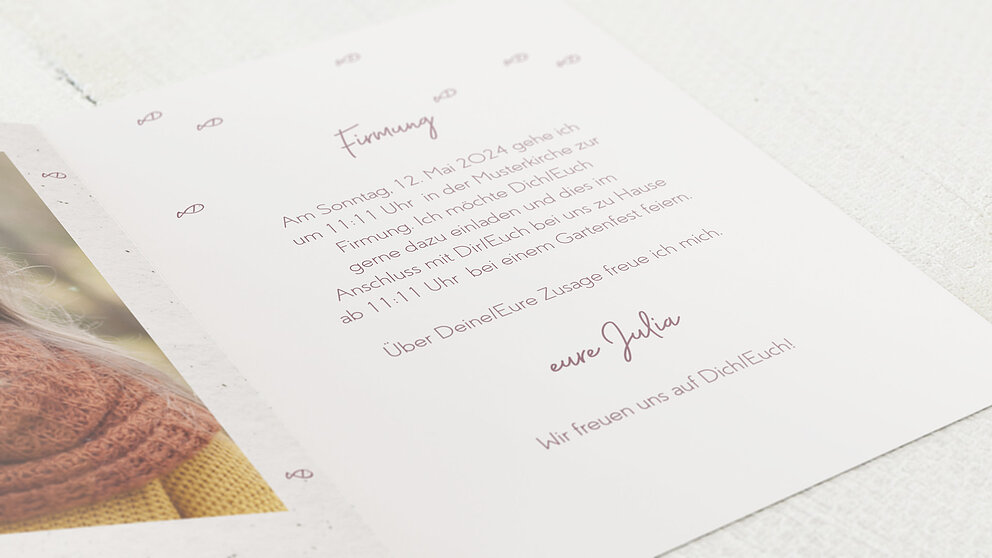 Firmung
Am Sonntag, 12. Mai 2024 gehe ich
um 11:11 Uhr in der Musterkirche zur
Firmung. Ich möchte Dich/Euch
gerne dazu einladen und dies im
Anschluss mit Dir/Euch bei uns zu Hause
ab 11:11 Uhr bei einem Gartenfest feiern.
Über Deine/Eure Zusage freue ich mich.
eure Julia
Wir freuen uns auf Dich/Euch!